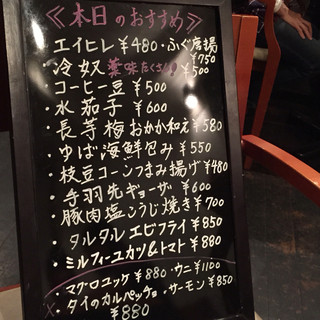 ≪本日のおすすめ≫
・エイヒレ¥480・ふぐ唐揚¥750
・冷奴 薬味たくさん!! ¥500
・コーヒー豆 ¥500
・水茄子 ¥600
・長芋梅おかか和え ¥580
・ゆば海鮮包み ¥550
・枝豆コーンつまみ揚げ ¥480
・手羽先ギョーザ ¥600
・豚肉塩こうじ焼き ¥700
・タルタルエビフライ ¥850
・ミルフィーユカツ&トマト ¥880
・マグロユッケ ¥880・ウニ¥1100
・タイのカルペッチョ・サーモン¥850
¥880